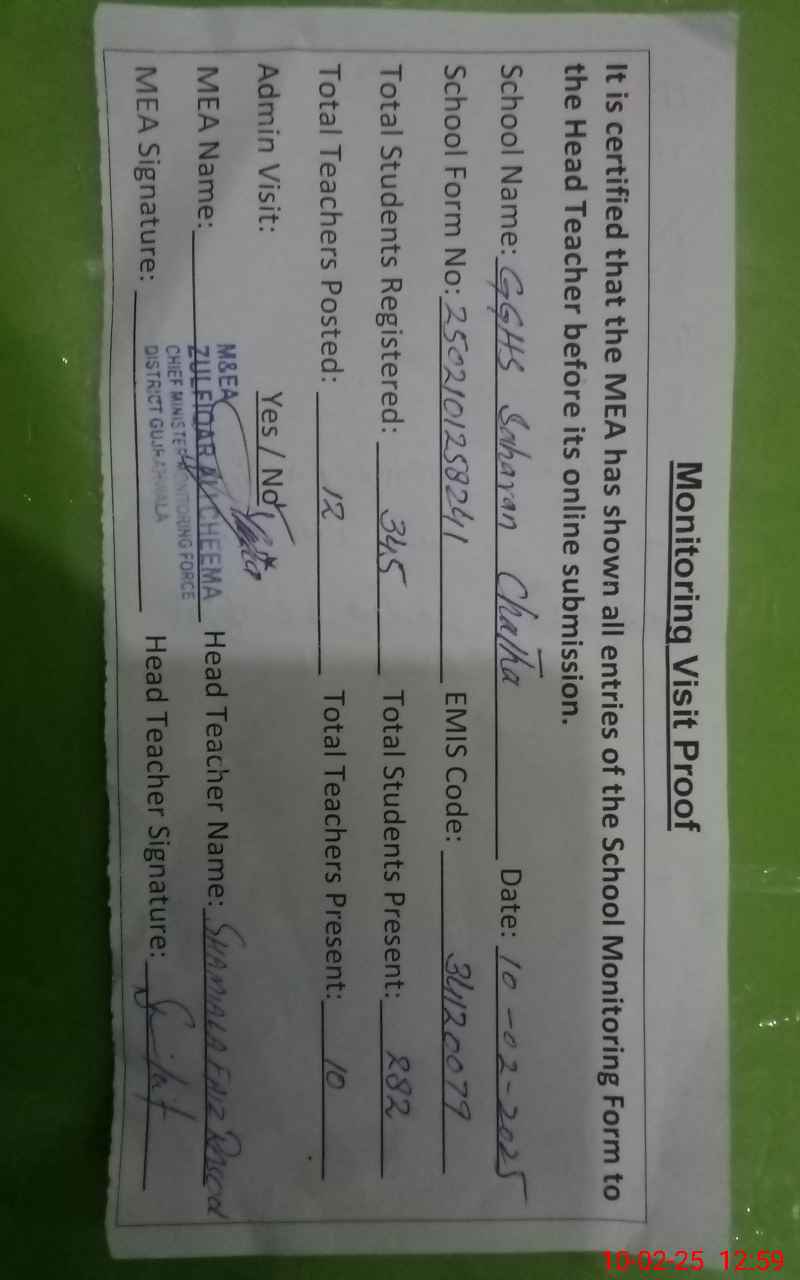 Monitoring Visit Proof
It is certified that the MEA has shown all entries of the School Monitoring Form to
the Head Teacher before its online submission.
School Name: GGHS Saharan Chatha Date: 10-02-2025
School Form No: 2502101258241 EMIS Code: 34120079
Total Students Registered: 345 Total Students Present: 282
Total Teachers Posted: 12 Total Teachers Present: 10
Admin Visit: Yes / No
MEA Name: Head Teacher Name: SHAMALA
M&EA
ZULFIQAR ALI CHEEMA
CHIEF MINISTER MONITORING FORCE
DISTRICT GUJRANWALA
MEA Signature: Head Teacher Signature:
10-02-25 12:59